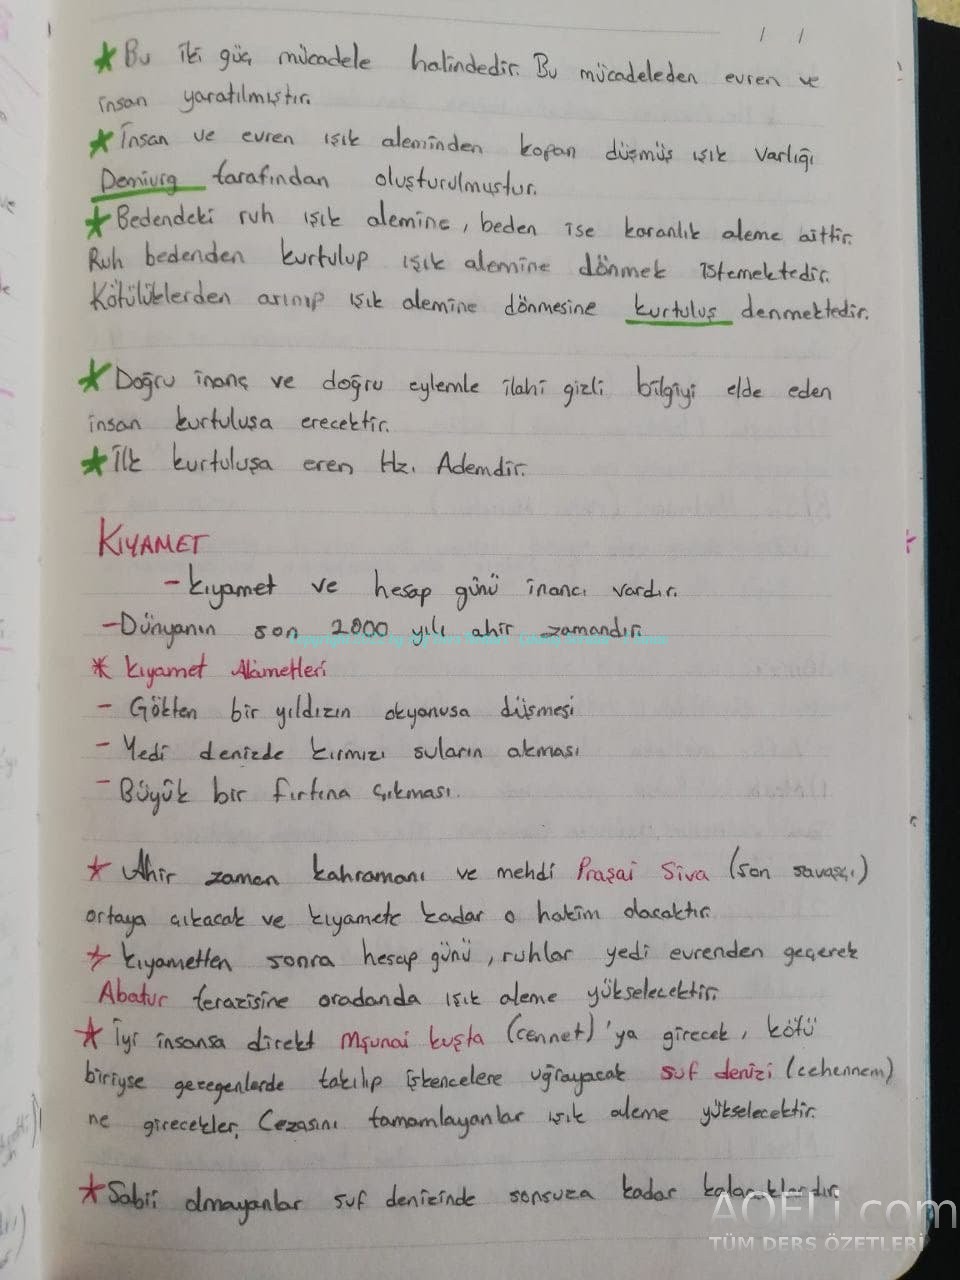 * Bu iki güç mücadele halindedir. Bu mücadeleden evren ve
insan yaratılmıştır.
* İnsan ve evren ışık aleminden kopan düşmüş ışık varlığı
Demiurg tarafından oluşturulmuştur.
* Bedendeki ruh ışık alemine, beden ise karanlık aleme aittir.
Ruh bedenden kurtulup ışık alemine dönmek istemektedir.
Kötülüklerden arınıp ışık alemine dönmesine kurtuluş denmektedir.
* Doğru inanç ve doğru eylemle ilahi gizli bilgiyi elde eden
insan kurtuluşa erecektir.
* İlk kurtuluşa eren Hz. Ademdir.
KIYAMET
- Kıyamet ve hesap günü inancı vardır.
- Dünyanın son 2000 yılı ahir zamandır.
* Kıyamet Alametleri
- Gökten bir yıldızın okyanusa düşmesi
- Yedi denizde kırmızı suların akması
- Büyük bir fırtına çıkması.
* Ahir zaman kahramanı ve mehdi Praşai Siva (son savaşçı)
ortaya çıkacak ve kıyamete kadar o hakim olacaktır.
* Kıyametten sonra hesap günü, ruhlar yedi evrenden geçerek
Abatur terazisine oradanda ışık aleme yükselecektir.
* İyi insansa direkt Mşunai Kuşta (cennet)'ya girecek, kötü
biriyse gezegenlerde takılıp işkencelere uğrayacak suf denizi (cehennem)
ne girecekler. Cezasını tamamlayanlar ışık aleme yükselecektir.
* Sabii olmayanlar suf denizinde sonsuza kadar kalacaklardır.
AOFLi.com
TÜM DERS ÖZETLERİ